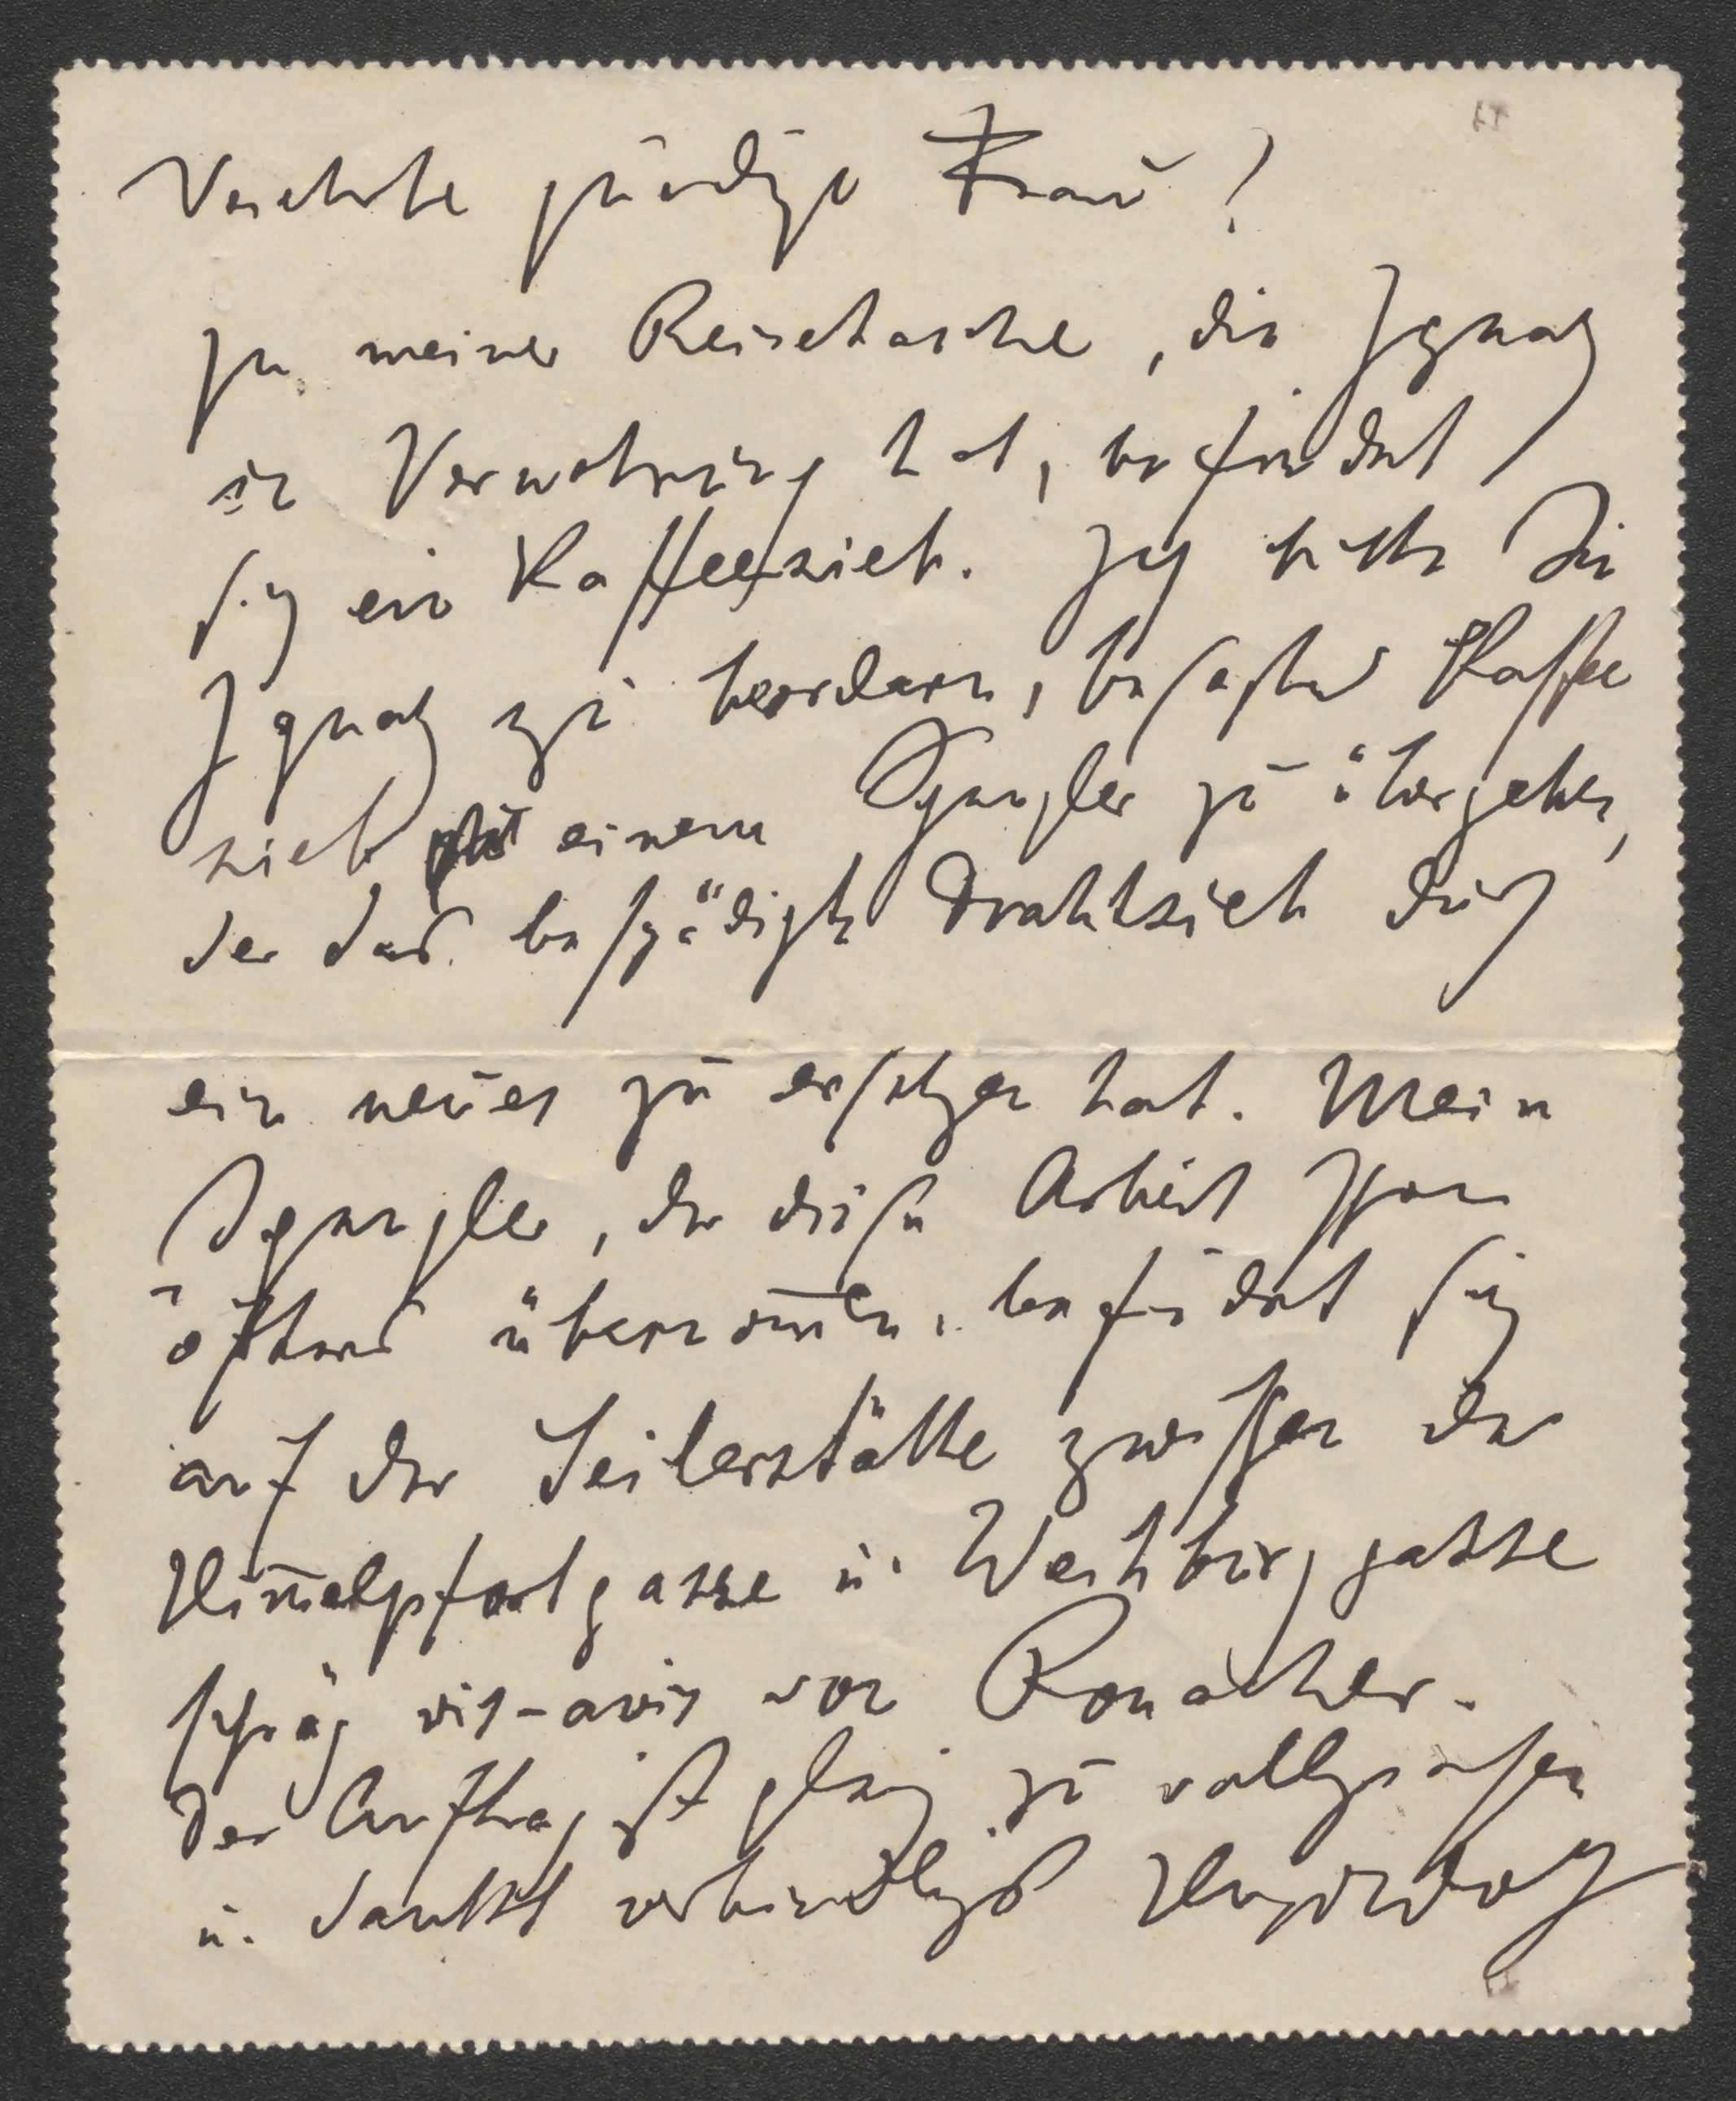 Verehrte gnädige Frau!
In meiner Reisetasche, die Ignaz
in Verwahrung hat, befindet
sich ein Kaffeesieb. Ich bitte Sie
Ignaz zu beordern, besagtes Kaffee
sieb einem Spengler zu übergeben,
der das beschädigte Drahtsieb durch
ein neues zu ersetzen hat. Mein
Spengler, der diese Arbeit schon
öfters übernom̄en, befindet sich
auf der Seilerstätte zwischen der
Him̄elpfortgasse u. Weihburggasse
schräg vis-avis von Ronacher.
Der Auftrag ist gleich zu vollziehen
u. dankt verbindlichst